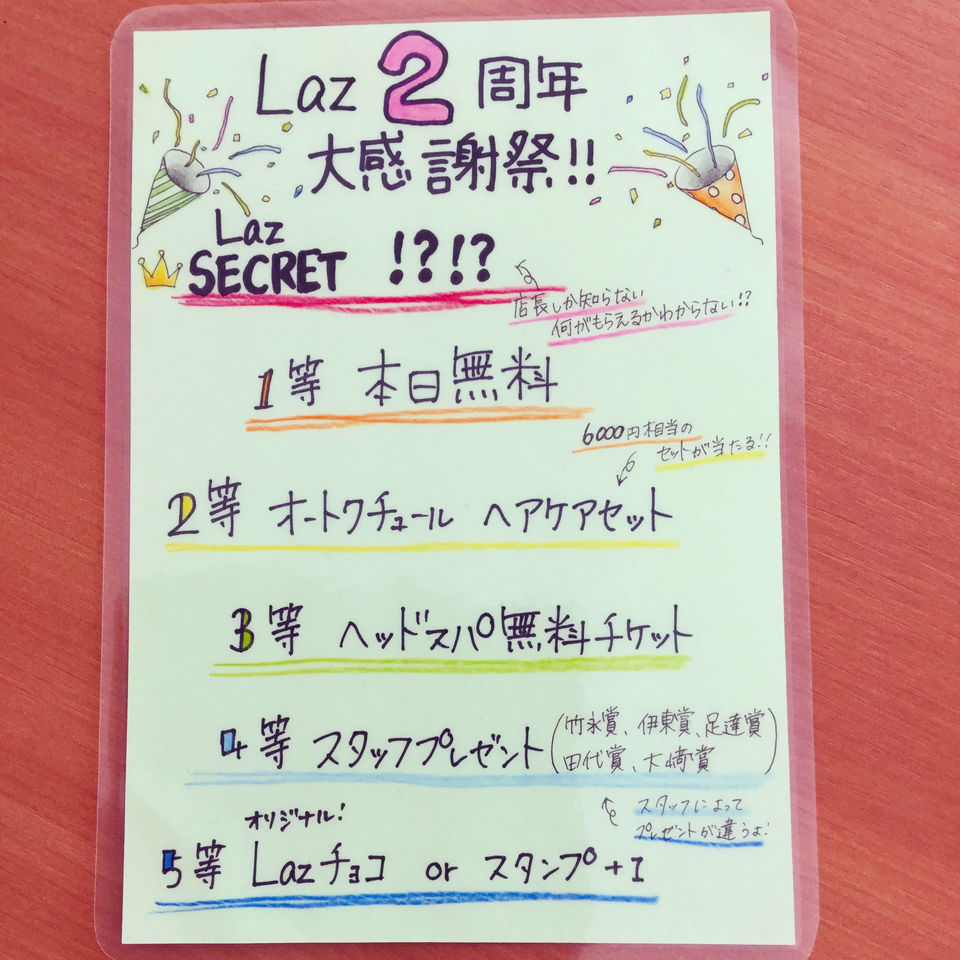 Laz 2 周年
大感謝祭!!
Laz
SECRET !?!?
店長しか知らない
何がもらえるかわからない!?
1等 本日無料
6000円相当の
セットが当たる!!
2等 オートクチュール ヘアケアセット
3等 ヘッドスパ無料チケット
4等 スタッフプレゼント(竹永賞、伊東賞、足達賞
田代賞、大崎賞)
スタッフによって
プレゼントが違うよ!
オリジナル!
5等 Lazチョコ or スタンプ+1